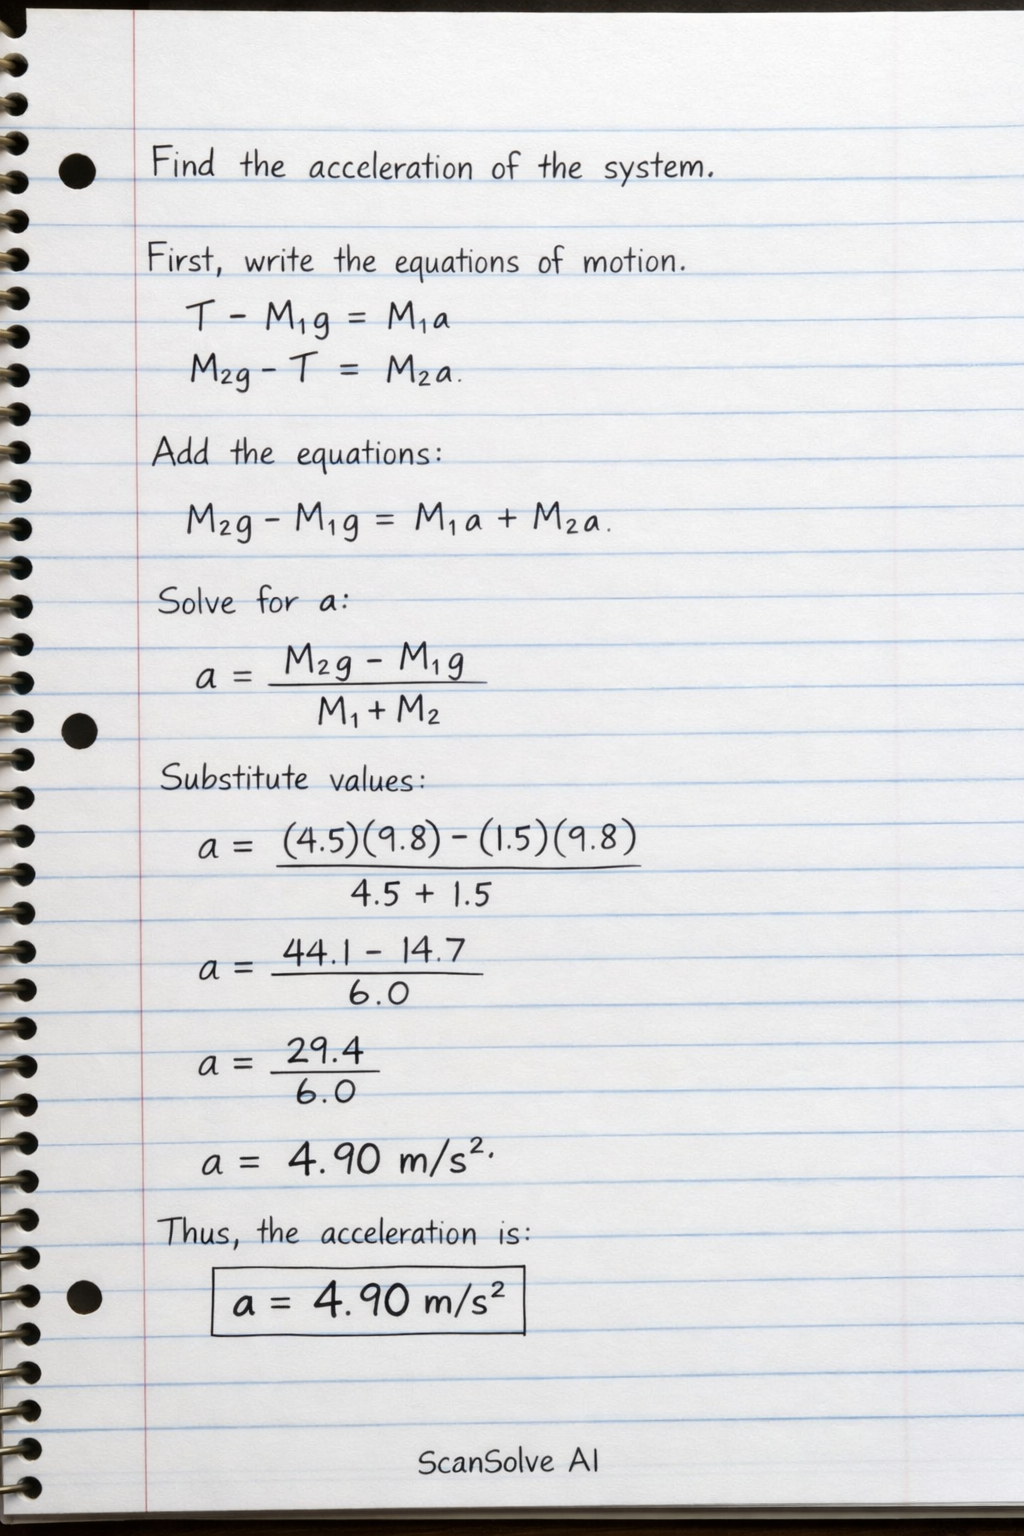 Find the acceleration of the system.
First, write the equations of motion.
T - M₁g = M₁a
M₂g - T = M₂a.
Add the equations:
M₂g - M₁g = M₁a + M₂a.
Solve for a:
a = (M₂g - M₁g) / (M₁ + M₂)
Substitute values:
a = ((4.5)(9.8) - (1.5)(9.8)) / (4.5 + 1.5)
a = (44.1 - 14.7) / 6.0
a = 29.4 / 6.0
a = 4.90 m/s².
Thus, the acceleration is:
a = 4.90 m/s²
ScanSolve AI